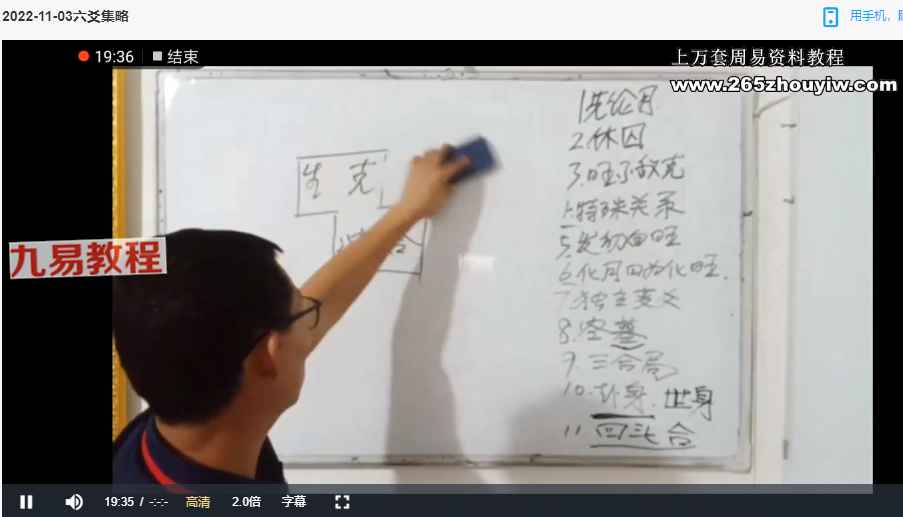 2022-11-03六爻集略
用手机,
19:36 结束
上万套周易资料教程
www.265zhouyiw.com
九易教程
生 克
合
1先论月
2.休囚
3.旺不敌克
特殊关系
5.发动自旺
6.化月日为化旺.
7.独立
8.空墓
9.三合局
10.卦身.世身
11回头合
19:35 / -:-:-
高清
2.0倍
字幕